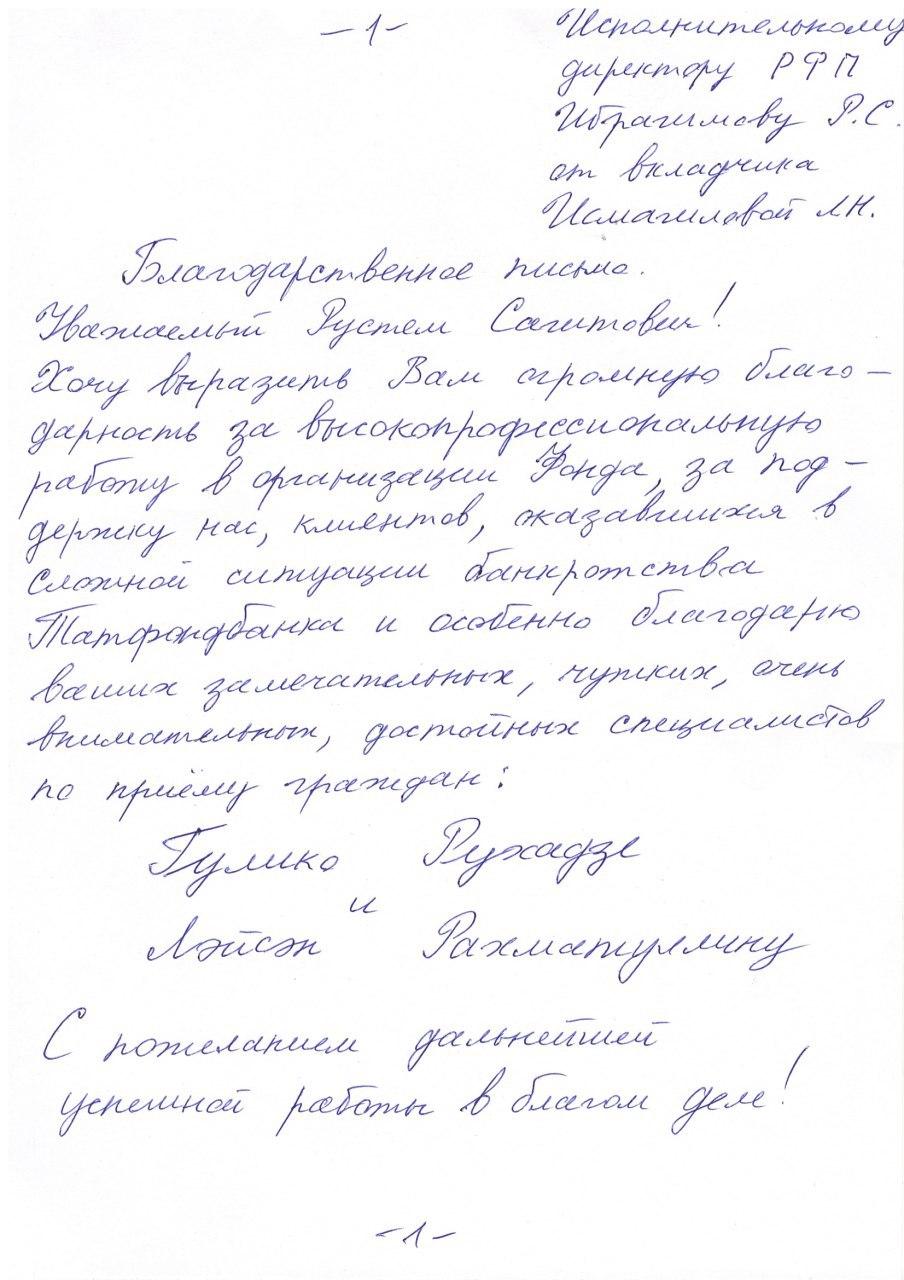 -1-
Исполнительному
директору РФП
Ибрагимову Р.С.
от вкладчика
Исмагиловой Л.Н.
Благодарственное письмо.
Уважаемый Рустем Сагитович!
Хочу выразить Вам огромную благо-
дарность за высокопрофессиональную
работу в организации Фонда, за под-
держку нас, клиентов, оказавшихся в
сложной ситуации банкротства
Татфондбанка и особенно благодарю
ваших замечательных, чутких, очень
внимательных, достойных специалистов
по приёму граждан:
Гулико Рухадзе
и
Лэйсэн Рахматуллину
С пожеланием дальнейшей
успешной работы в благом деле!
-1-